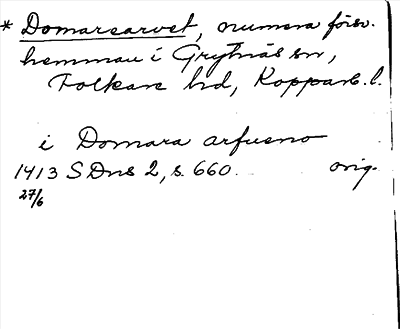 * Domarsarvet, numera försv.
hemman i Grytnäs sn,
Folkare hd, Kopparb. l.
i Domara arfueno
1413 SDns 2, s. 660. orig.
27/6